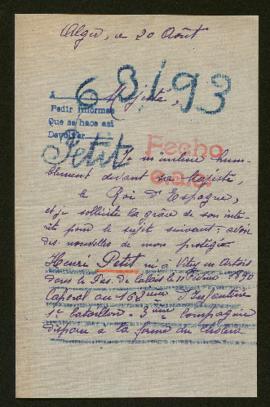 Alger, le 20 Août
68/93
Majesté,
A
Pedir informes
Que se hace así
Devolver
Petit
Fecho
Je m'incline hum-
blement devant sa Majesté,
le Roi d'Espagne,
et je sollicite la grâce de son inté-
rêt pour le sujet suivant: avoir
des nouvelles de mon protégé
Henri Petit né à Vitry en Artois
dans le Pas de Calais le 11 1890
Caporal au 158ème Infanterie
1er bataillon - 3ème Compagnie
disparu à la